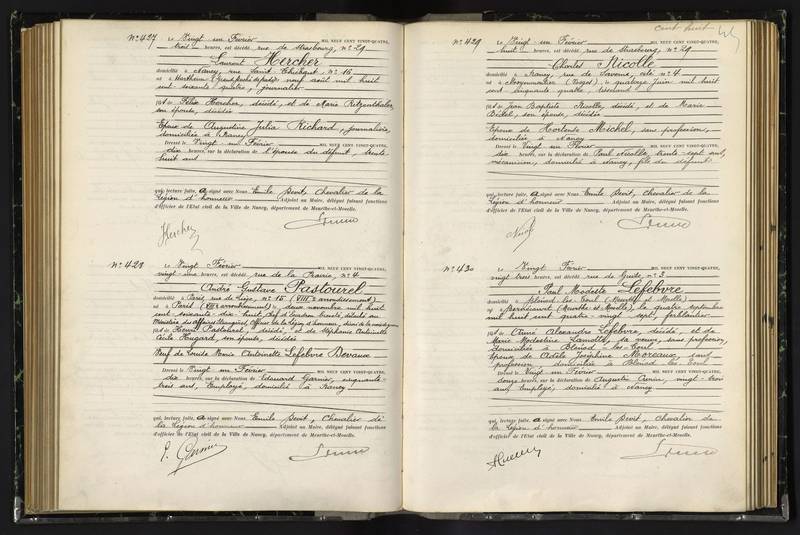 N° 427 Le Vingt un Février MIL NEUF CENT VINGT-QUATRE,
trois heures, est décédé, rue de Strasbourg, n° 29
Laurent Hercher
domicilié à Nancy, rue Saint Thiébaut, n° 16
né à neuf août mil huit
cent soixante quatre, journalier
fils de Félix Hercher, décédé, et de Marie Ritzenthaler,
son épouse, décédée
Epoux de Augustine Julia Richard, journalière,
domiciliée à Nancy
Dressé le Vingt un Février MIL NEUF CENT VINGT-QUATRE,
dix heures, sur la déclaration de l'épouse du défunt, trente
huit ans
qui, lecture faite, a signé avec Nous Emile Chevalier de la
Légion d'honneur Adjoint au Maire, délégué faisant fonctions
d'officier de l'Etat civil de la Ville de Nancy, département de Meurthe-et-Moselle.
Hercher
N° 428 Le Vingt Février MIL NEUF CENT VINGT-QUATRE,
vingt une heures, est décédé, rue de la Prairie, n° 4
André Gustave Pastourel
domicilié à Paris, rue de n° 15 (VIII e arrondissement)
né à Paris deux novembre mil huit
cent soixante dix huit, Chef d'Escadron breveté, détaché au
Ministère des Affaires Etrangères, Officier de la Légion d'honneur,
fils de Henri Pastourel, décédé, et de Stéphanie Antoinette
Cécile Hugard, son épouse, décédée
Veuf de Louise Marie Antoinette Lefebvre Devaux
Dressé le Vingt un Février MIL NEUF CENT VINGT-QUATRE,
dix heures, sur la déclaration de Edouard Garnier, cinquante-
trois ans, Employé, domicilié à Nancy
qui, lecture faite, a signé avec Nous Emile Chevalier de
la Légion d'honneur Adjoint au Maire, délégué faisant fonctions
d'officier de l'Etat civil de la Ville de Nancy, département de Meurthe-et-Moselle.
E. Garnier
Cent huit
N° 429 Le Vingt un Février MIL NEUF CENT VINGT-QUATRE,
huit heures, est décédé, rue de Strasbourg, n° 29
Charles Nicolle
domicilié à Nancy, rue de Saverne, cité n° 4
né à Moyenmoutier (Vosges), le quatorze Juin mil huit
cent cinquante quatre, tisserand
fils de Jean Baptiste Nicolle, décédé, et de Marie
son épouse, décédée
Epoux de Hortense Michel, sans profession,
domiciliée à Nancy
Dressé le Vingt un Février MIL NEUF CENT VINGT-QUATRE,
dix heures, sur la déclaration de Paul Nicolle, trente-sept ans,
mécanicien, domicilié à Nancy, fils du défunt
qui, lecture faite, a signé avec Nous Emile Chevalier de la
Légion d'honneur Adjoint au Maire, délégué faisant fonctions
d'officier de l'Etat civil de la Ville de Nancy, département de Meurthe-et-Moselle.
N° 430 Le Vingt Février MIL NEUF CENT VINGT-QUATRE,
vingt trois heures, est décédé rue de Guise n° 3
Paul Modeste Lefebvre
domicilié à Blénod les Toul (Meurthe et Moselle)
né à (Meurthe et Moselle), le quatre septembre
mil huit cent quatre-vingt sept, ferblantier
fils de Aimé Alexandre Lefebvre, décédé, et de
Marie Modestine sa veuve, sans profession,
domiciliée à Blénod-les-Toul
Epoux de Adèle Joséphine Moreaux, sans
profession, domiciliée à Blénod les Toul
Dressé le Vingt un Février MIL NEUF CENT VINGT-QUATRE,
douze heures, sur la déclaration de Augustin vingt-trois
ans, Employé, domicilié à Nancy
qui, lecture faite, a signé avec Nous Emile Chevalier de
la Légion d'honneur Adjoint au Maire, délégué faisant fonctions
d'officier de l'Etat civil de la Ville de Nancy, département de Meurthe-et-Moselle.